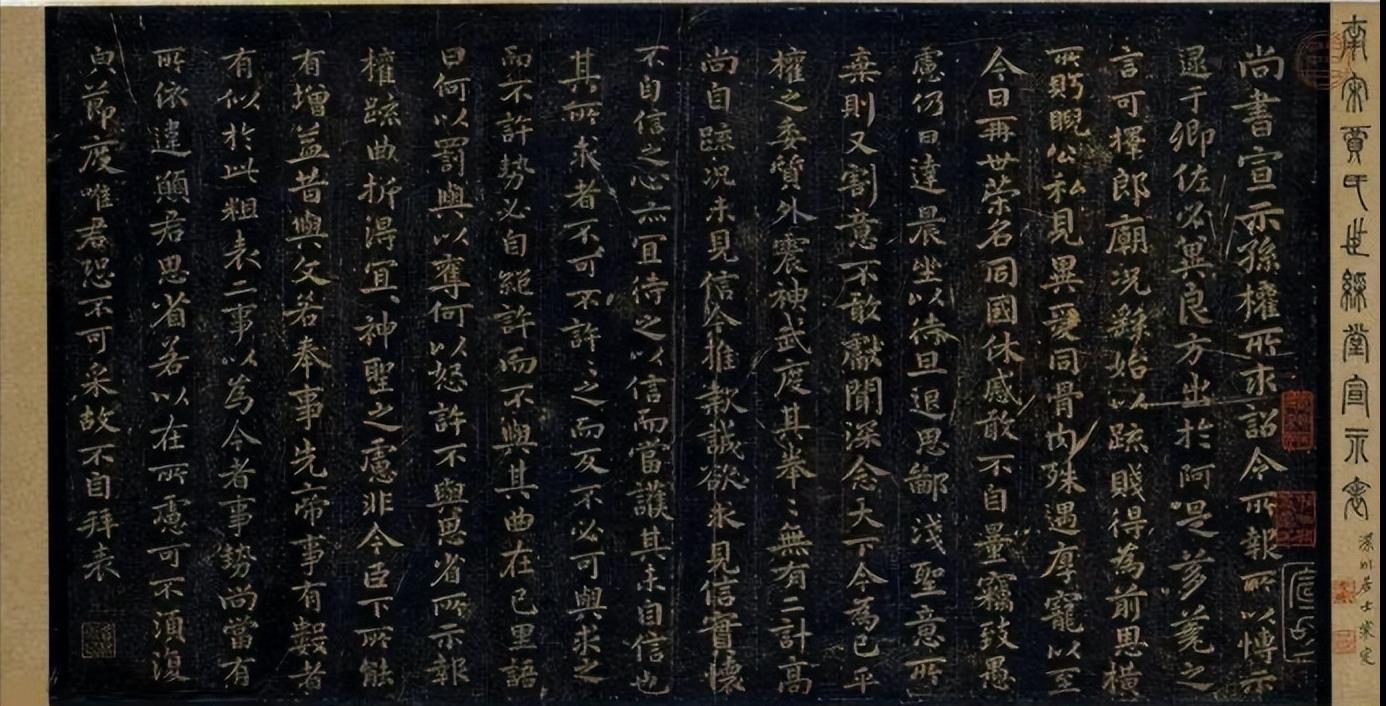 南宋賈氏世綵堂宣示表
尚書宣示孫權所求詔令所報所以博示
逮于卿佐必冀良方出於阿是芻蕘之
言可擇郎廟況繇始以疏賤得為前恩橫
所眄睨公私見異愛同骨肉殊遇厚寵以至
今日再世榮名同國休慼敢不自量竊致愚
慮仍日達晨坐以待旦退思鄙淺聖意所
棄則又割意不敢獻聞深念天下今為已平
權之委質外震神武度其拳〻無有二計高
尚自疏況未見信今推款誠欲求見信實懷
不自信之心亦宜待之以信而當護其未自信也
其所求者不可不許〻之而反不必可與求之
而不許勢必自絕許而不與其曲在己里語
曰何以罰與以奪何以怒許不與思省所示報
權疏曲折得宜、神聖之慮非今臣下所能
有增益昔與文若奉事先帝事有數者
有似於此粗表二事以為今者事勢尚當有
所依違願君思省若以在所慮可不須復
皃節度唯君恐不可采故不自拜表